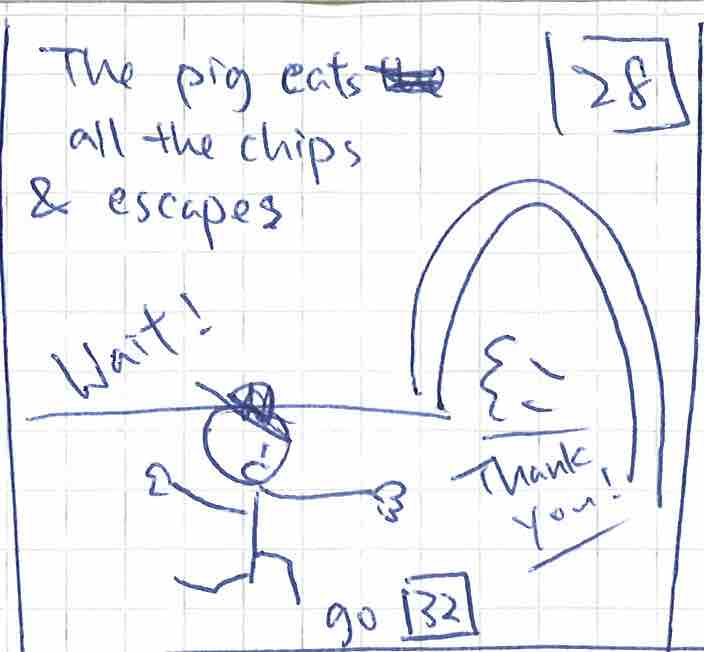 The pig eats
28
all the chips
& escapes
Wait!
Thank
you!
go 32